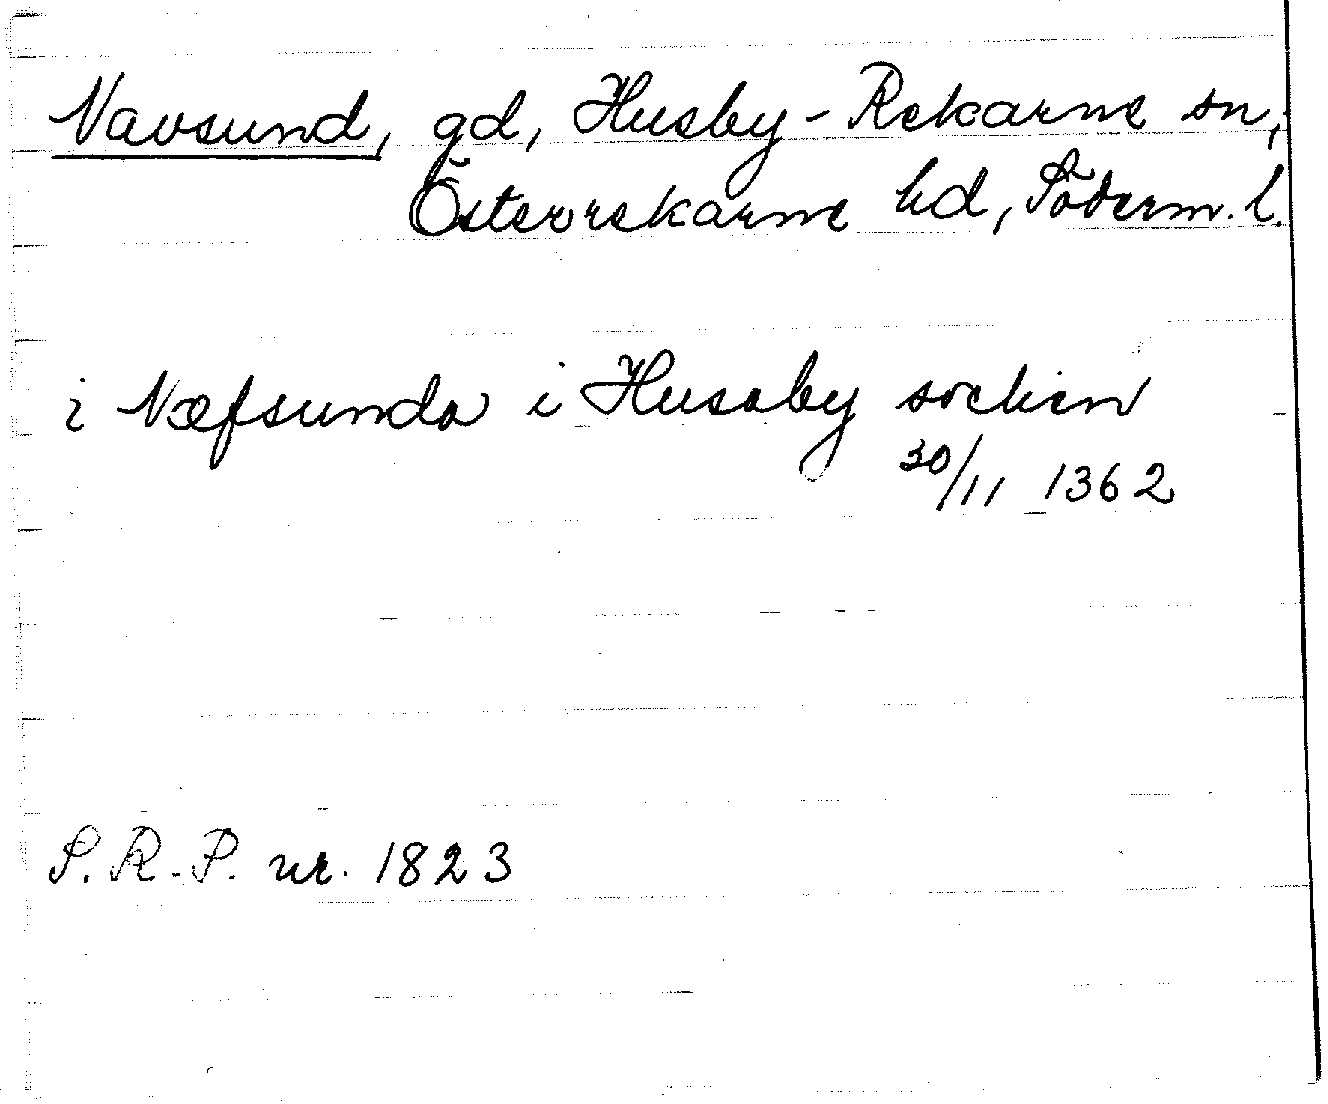 Navsund, gd, Husby-Rekarne sn,
Österrekarne hd, Söderm. l.
i Næfsunda i Husaby sochen
30/11 1362
S.R.P. nr. 1823